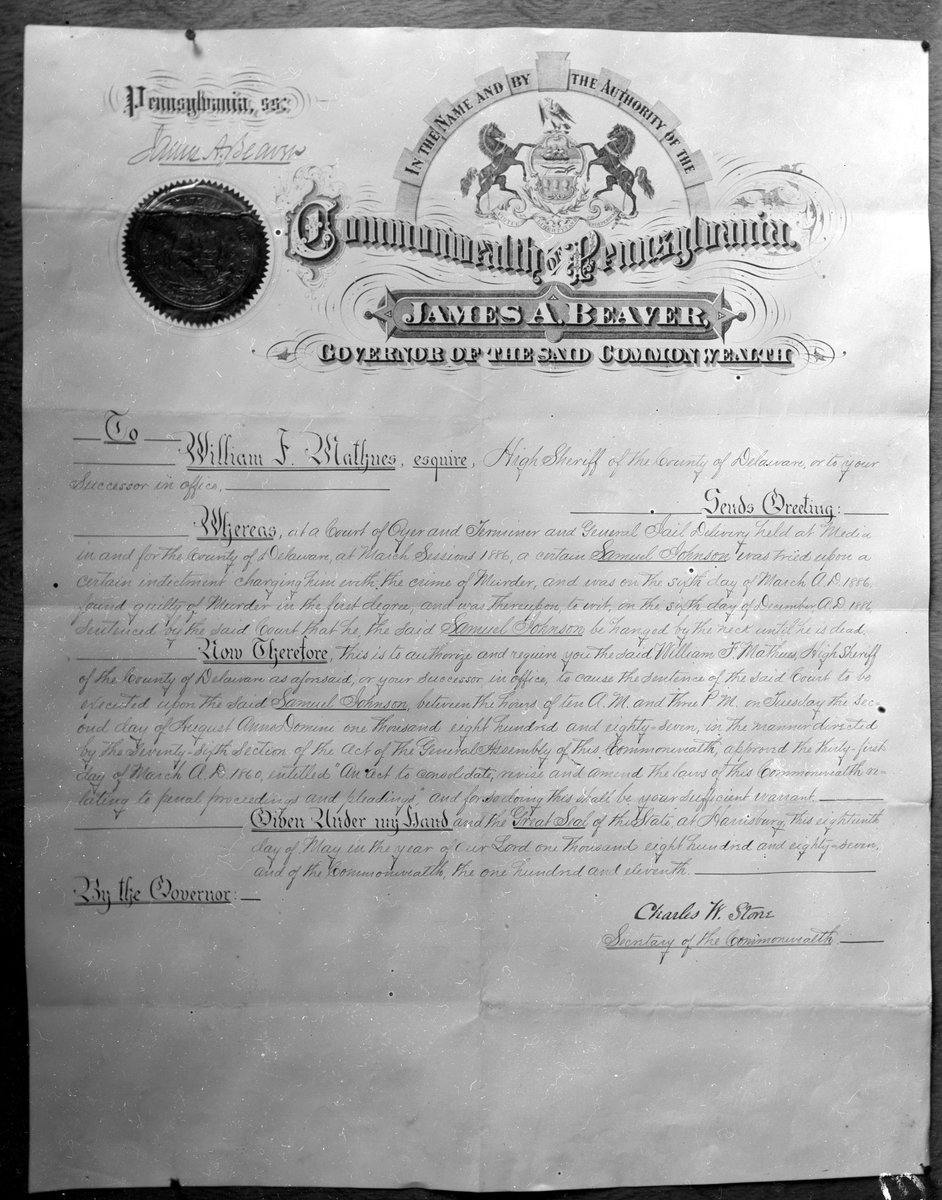 Pennsylvania, ss:
James A. Beaver
IN THE NAME AND BY THE AUTHORITY OF THE
Commonwealth of Pennsylvania.
JAMES A. BEAVER,
GOVERNOR OF THE SAID COMMONWEALTH
To
William F. Mathues, esquire, High Sheriff of the County of Delaware, or to your
Successor in office,
Sends Greeting:
Whereas, at a Court of Oyer and Terminer and General Jail Delivery held at Media
in and for the County of Delaware, at March Sessions 1886, a certain Samuel Johnson was tried upon a
certain indictment charging him with the crime of Murder, and was on the sixth day of March A.D. 1886,
found guilty of Murder in the first degree, and was thereupon, to wit, on the sixth day of December A.D. 1886,
sentenced by the said Court that he, the said Samuel Johnson be hanged by the neck until he is dead.
Now Therefore, this is to authorize and require you the said William F. Mathues, High Sheriff
of the County of Delaware as aforesaid, or your successor in office, to cause the sentence of the said Court to be
executed upon the said Samuel Johnson, between the hours of ten A.M. and three P.M. on Tuesday the sec-
ond day of August Anno Domini one thousand eight hundred and eighty-seven, in the manner directed
by the Seventy-sixth Section of the Act of the General Assembly of this Commonwealth, approved the thirty-first
day of March A.D. 1860, entitled "An act to consolidate, revise and amend the laws of this Commonwealth re-
lating to penal proceedings and pleadings," and for so doing this shall be your sufficient warrant.
Given Under my Hand and the Great Seal of the State, at Harrisburg, this eighteenth
day of May in the year of Our Lord one thousand eight hundred and eighty-seven,
and of the Commonwealth, the one hundred and eleventh.
By the Governor:
Charles W. Stone
Secretary of the Commonwealth